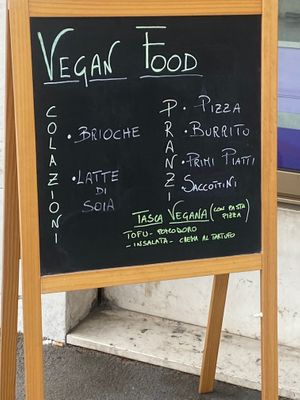 VEGAN FOOD
COLAZIONI
• BRIOCHE
• LATTE
DI
SOIA
PRANZI
• PIZZA
• BURRITO
• PRIMI PIATTI
• SACCOTTINI
TASCA VEGANA (CON PASTA
PIZZA)
TOFU - POMODORO
- INSALATA - CREMA AL TARTUFO